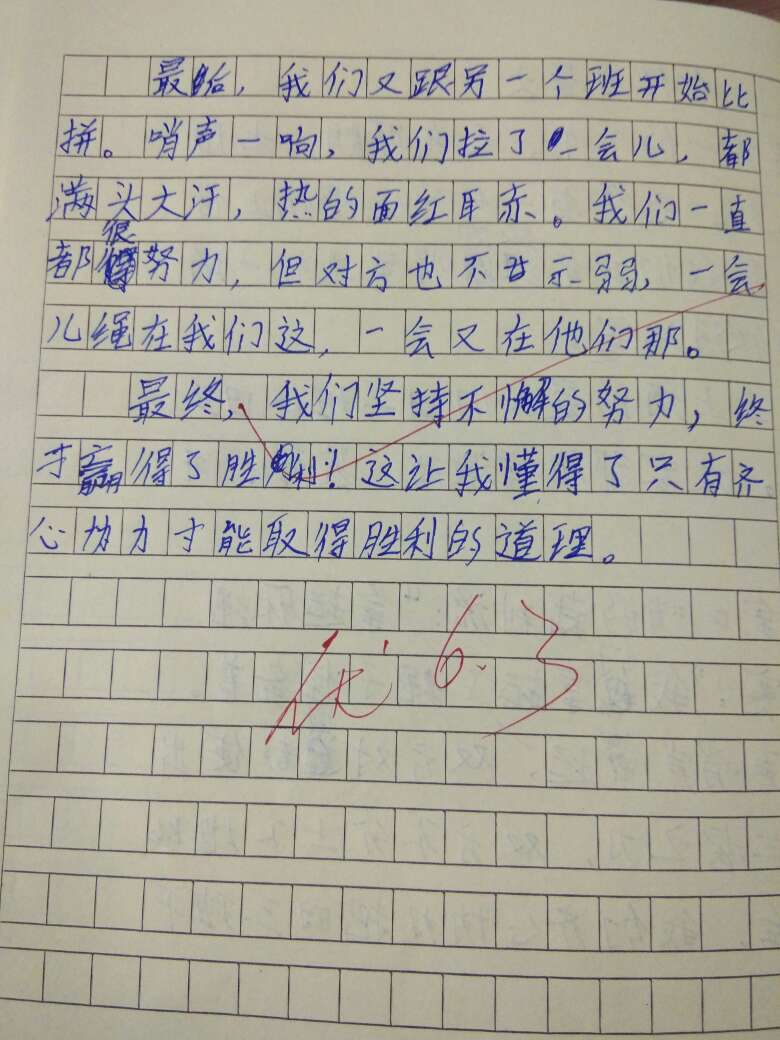 最后，我们又跟另一个班开始比
拼。哨声一响，我们拉了一会儿，都
满头大汗，热的面红耳赤。我们一直
都很努力，但对方也不甘示弱，一会
儿绳在我们这，一会又在他们那。
最终，我们坚持不懈的努力，终
于赢得了胜利！这让我懂得了只有齐
心协力才能取得胜利的道理。
优 6.3